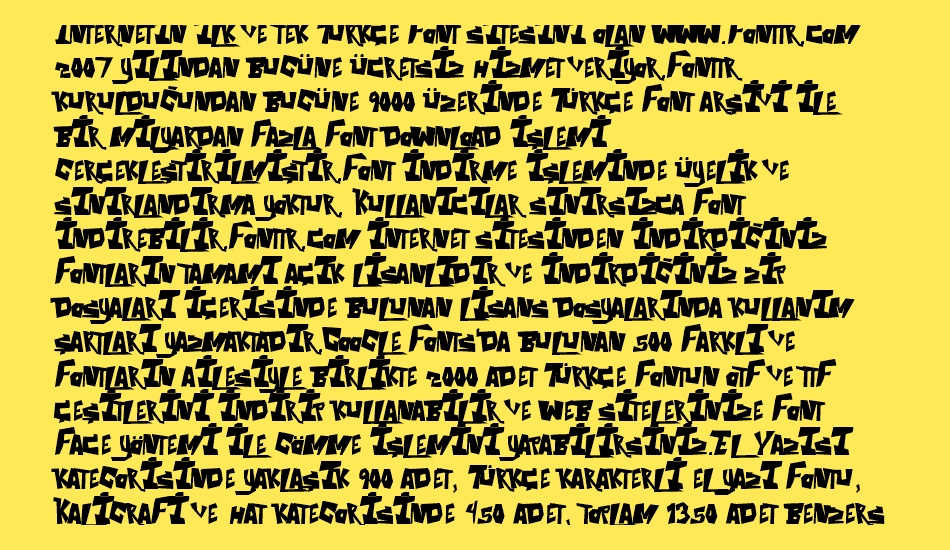 İNTERNETİN İLK VE TEK TÜRKÇE FONT SİTESİNİ OLAN WWW.FONTTR.COM
2007 YILINDAN BUGÜNE ÜCRETSİZ HİZMET VERİYOR.FONTTR
KURULDUĞUNDAN BUGÜNE 9000 ÜZERİNDE TÜRKÇE FONT ARŞİVİ İLE
BİR MİLYARDAN FAZLA FONT DOWNLOAD İŞLEMİ
GERÇEKLEŞTİRİLMİŞTİR.FONT İNDİRME İŞLEMİNDE ÜYELİK VE
SINIRLANDIRMA YOKTUR, KULLANICILAR SINIRSIZCA FONT
İNDİREBİLİR.FONTTR.COM İNTERNET SİTESİNDEN İNDİRDİĞİNİZ
FONTLARIN TAMAMI AÇIK LİSANLIDIR VE İNDİRDİĞİNİZ ZİP
DOSYALARI İÇERİSİNDE BULUNAN LİSANS DOSYALARINDA KULLANIM
ŞARTLARI YAZMAKTADIR.GOOGLE FONTS'DA BULUNAN 500 FARKLI VE
FONTLARIN AİLESİYLE BİRLİKTE 2000 ADET TÜRKÇE FONTUN OTF VE TTF
ÇEŞİTLERİNİ İNDİRİP KULLANABİLİR VE WEB SİTELERİNİZE FONT
FACE YÖNTEMİ İLE GÖMME İŞLEMİNİ YAPABİLİRSİNİZ.EL YAZISI
KATEGORİSİNDE YAKLAŞIK 900 ADET, TÜRKÇE KARAKTERLİ EL YAZI FONTU,
KALİGRAFİ VE HAT KATEGORİSİNDE 450 ADET, TOPLAM 1350 ADET BENZERS